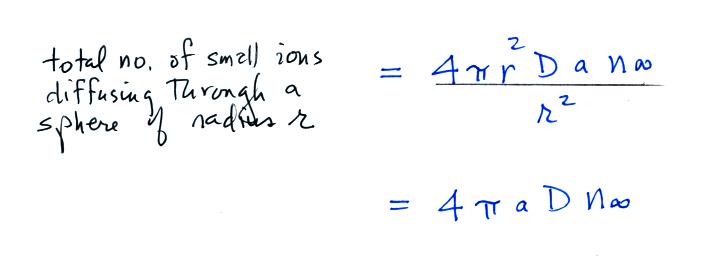 total no. of small ions
diffusing through a
sphere of radius r
= 4πr² D a n∞
r²
= 4 π a D n∞